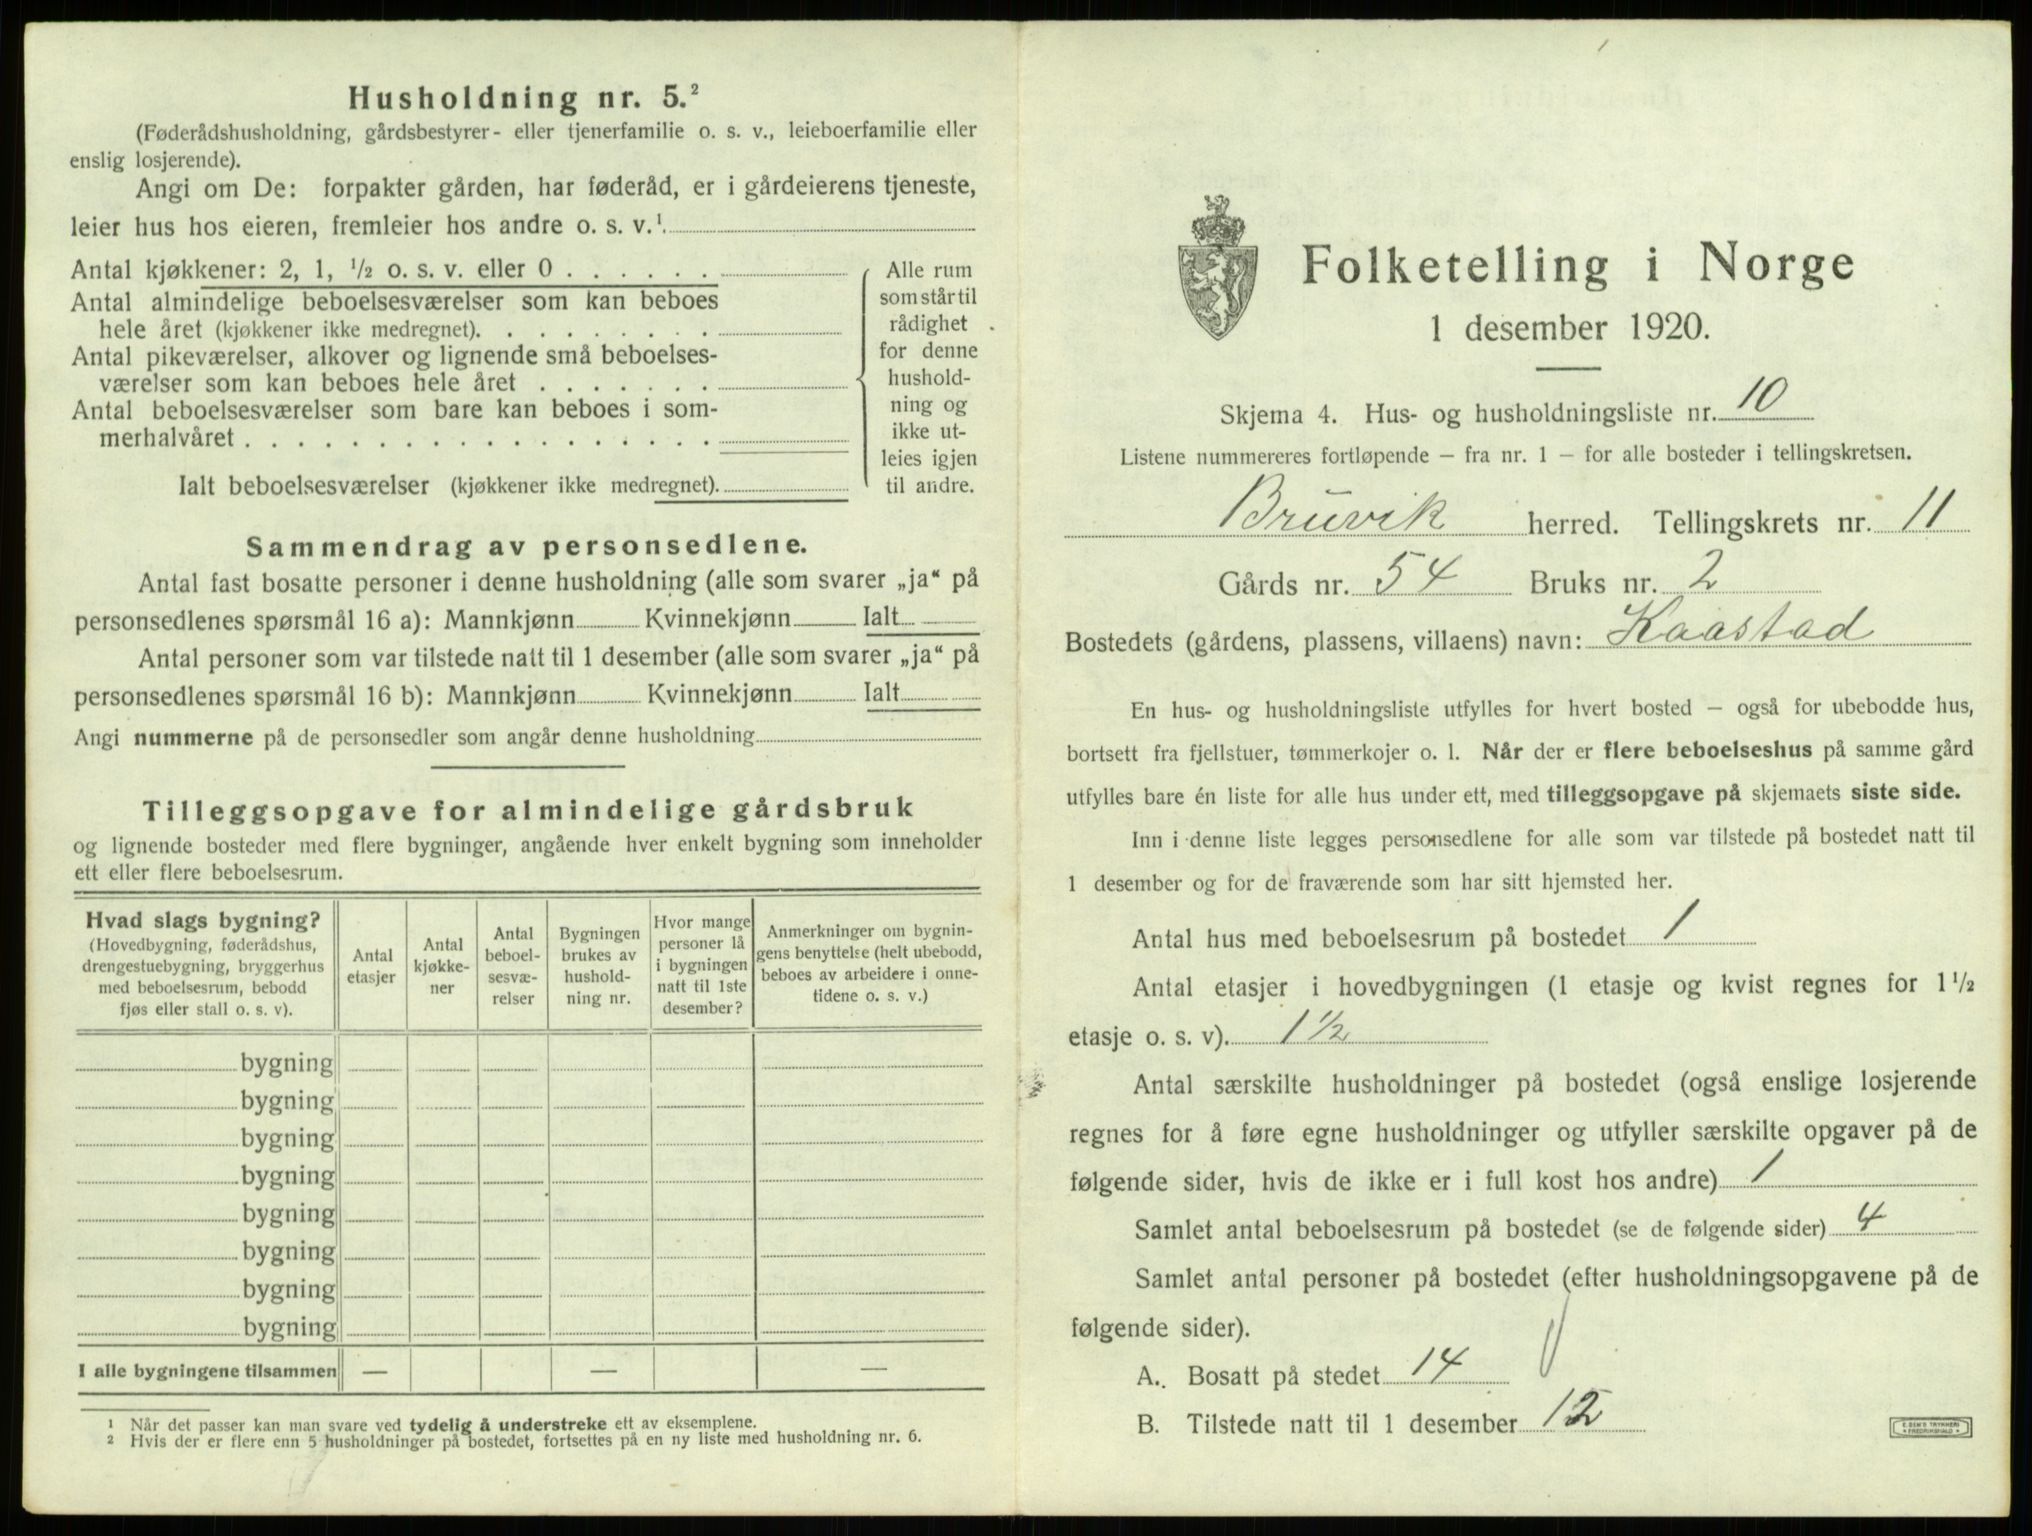 Husholdning nr. 5.²
(Føderådshusholdning, gårdsbestyrer- eller tjenerfamilie o. s. v., leieboerfamilie eller
enslig losjerende).
Angi om De: forpakter gården, har føderåd, er i gårdeierens tjeneste,
leier hus hos eieren, fremleier hos andre o. s. v.¹
Antal kjøkkener: 2, 1, ½ o. s. v. eller 0 . . . . . .
Antal almindelige beboelsesværelser som kan beboes
hele året (kjøkkener ikke medregnet). . . . . . . .
Antal pikeværelser, alkover og lignende små beboelses-
værelser som kan beboes hele året . . . . . . .
Antal beboelsesværelser som bare kan beboes i som-
merhalvåret . . . . . . . . . . . . . . . . . .
Ialt beboelsesværelser (kjøkkener ikke medregnet).
Alle rum
som står til
rådighet
for denne
hushold-
ning og
ikke ut-
leies igjen
til andre.
Sammendrag av personsedlene.
Antal fast bosatte personer i denne husholdning (alle som svarer „ja“ på
personsedlenes spørsmål 16 a): Mannkjønn Kvinnekjønn Ialt
Antal personer som var tilstede natt til 1 desember (alle som svarer „ja“ på
personsedlenes spørsmål 16 b): Mannkjønn Kvinnekjønn Ialt
Angi nummerne på de personsedler som angår denne husholdning
Tilleggsopgave for almindelige gårdsbruk
og lignende bosteder med flere bygninger, angående hver enkelt bygning som inneholder
ett eller flere beboelsesrum.
Hvad slags bygning?
(Hovedbygning, føderådshus,
drengestuebygning, bryggerhus
med beboelsesrum, bebodd
fjøs eller stall o. s. v).
Antal
etasjer
Antal
kjøkke-
ner
Antal
beboel-
sesvæ-
relser
Bygningen
brukes av
hushold-
ning nr.
Hvor mange
personer lå
i bygningen
natt til 1ste
desember?
Anmerkninger om bygnin-
gens benyttelse (helt ubebodd,
beboes av arbeidere i onne-
tidene o. s. v.)
bygning
bygning
bygning
bygning
bygning
bygning
bygning
bygning
I alle bygningene tilsammen — — —
¹ Når det passer kan man svare ved tydelig å understreke ett av eksemplene.
² Hvis der er flere enn 5 husholdninger på bostedet, fortsettes på en ny liste med husholdning nr. 6.
Folketelling i Norge
1 desember 1920.
Skjema 4. Hus- og husholdningsliste nr. 10
Listene nummereres fortløpende — fra nr. 1 — for alle bosteder i tellingskretsen.
Bruvik herred. Tellingskrets nr. 11
Gårds nr. 54 Bruks nr. 2
Bostedets (gårdens, plassens, villaens) navn: Kaastad
En hus- og husholdningsliste utfylles for hvert bosted — også for ubebodde hus,
bortsett fra fjellstuer, tømmerkojer o. l. Når der er flere beboelseshus på samme gård
utfylles bare én liste for alle hus under ett, med tilleggsopgave på skjemaets siste side.
Inn i denne liste legges personsedlene for alle som var tilstede på bostedet natt til
1 desember og for de fraværende som har sitt hjemsted her.
Antal hus med beboelsesrum på bostedet 1
Antal etasjer i hovedbygningen (1 etasje og kvist regnes for 1½
etasje o. s. v). 1½
Antal særskilte husholdninger på bostedet (også enslige losjerende
regnes for å føre egne husholdninger og utfyller særskilte opgaver på de
følgende sider, hvis de ikke er i full kost hos andre) 1
Samlet antal beboelsesrum på bostedet (se de følgende sider) 4
Samlet antal personer på bostedet (efter husholdningsopgavene på de
følgende sider).
A. Bosatt på stedet 14
B. Tilstede natt til 1 desember 12